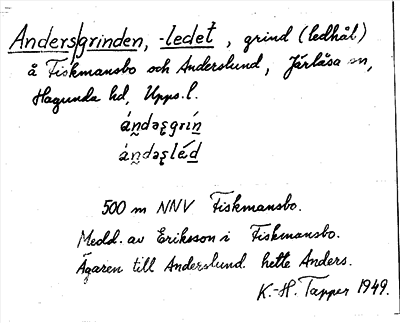 Anders|grinden, -ledet, grind (ledhål)
å Fiskmansbo och Anderslund, Järlåsa sn,
Hagunda hd, Upps.l.
ándəʂgrín
ándəʂléd
500 m NNV Fiskmansbo.
Medd. av Eriksson i Fiskmansbo.
Ägaren till Anderslund hette Anders.
K.-H. Tapper 1949.